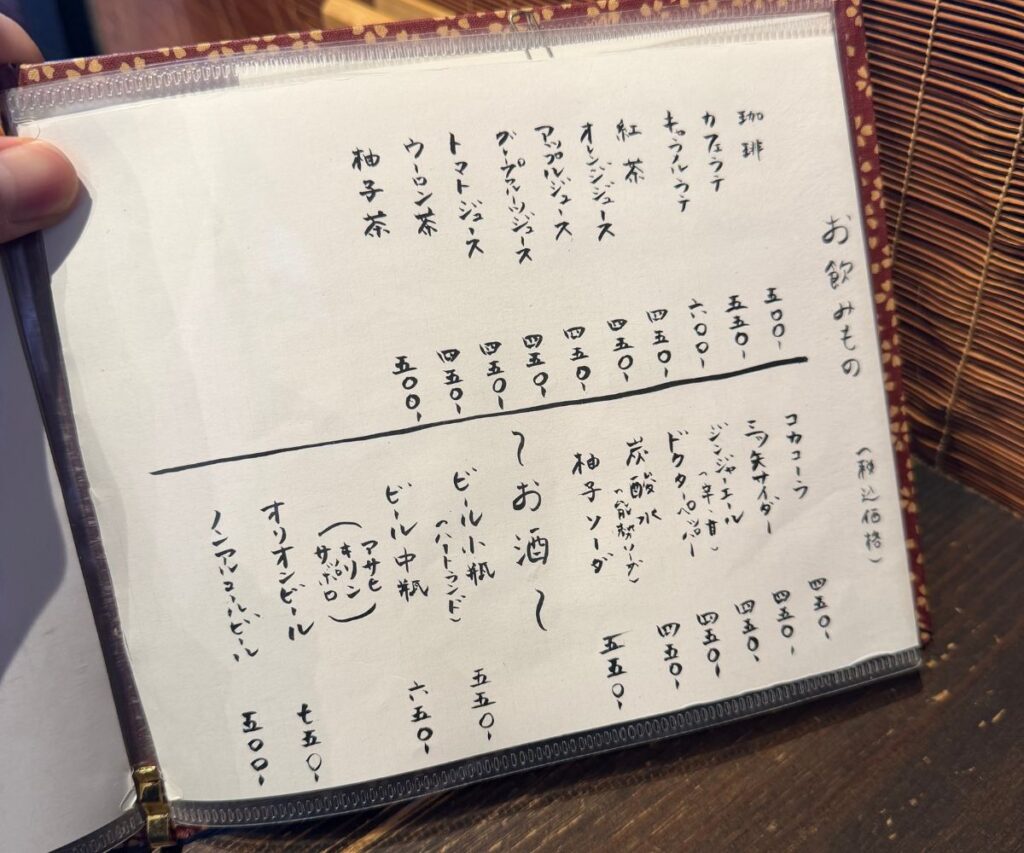 お飲みもの (税込価格)
珈琲 五〇〇、
カフェラテ 五五〇、
キャラメルラテ 六〇〇、
紅茶 四五〇、
オレンジジュース 四五〇、
アップルジュース 四五〇、
グレープフルーツジュース 四五〇、
トマトジュース 四五〇、
ウーロン茶 四五〇、
柚子茶 五〇〇、
コカコーラ 四五〇、
三ツ矢サイダー 四五〇、
ジンジャーエール 四五〇、
(辛、甘)
ドクターペッパー 四五〇、
炭酸水 四五〇、
(能勢ソーダ)
柚子ソーダ 五五〇、
〜お酒〜
ビール小瓶 五五〇、
(ハートランド)
ビール中瓶 六五〇、
(アサヒ
キリン
サッポロ)
オリオンビール 七五〇、
ノンアルコールビール 五〇〇、